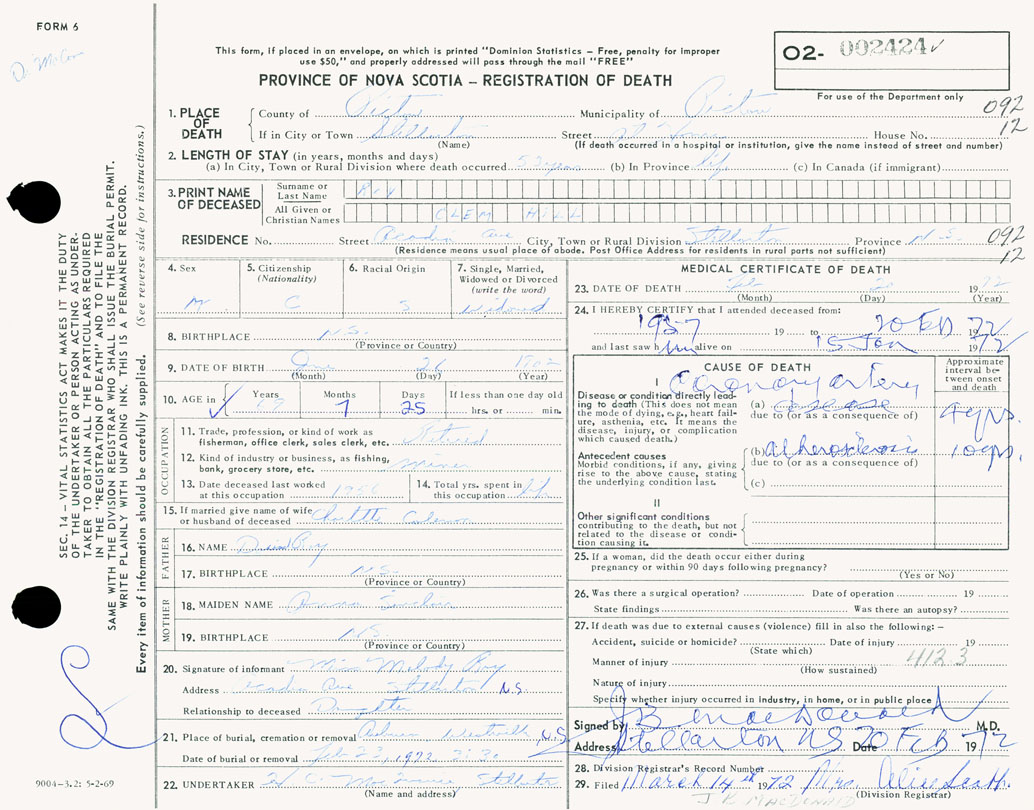 FORM 6
This form, if placed in an envelope, on which is printed "Dominion Statistics – Free, penalty for improper
use $50," and properly addressed will pass through the mail "FREE"
PROVINCE OF NOVA SCOTIA – REGISTRATION OF DEATH
O2- 002424
For use of the Department only
092
12
1. PLACE OF DEATH
County of Pictou Municipality of Pictou
If in City or Town Stellarton Street House No.
(Name) (If death occurred in a hospital or institution, give the name instead of street and number)
2. LENGTH OF STAY (in years, months and days)
(a) In City, Town or Rural Division where death occurred 53 years (b) In Province life (c) In Canada (if immigrant)
3. PRINT NAME OF DECEASED
Surname or Last Name Roy
All Given or Christian Names CLEM HILL
RESIDENCE No. Street Acadia Ave City, Town or Rural Division Stellarton Province N.S.
(Residence means usual place of abode. Post Office Address for residents in rural parts not sufficient)
092
12
4. Sex M.
5. Citizenship (Nationality) C
6. Racial Origin S
7. Single, Married, Widowed or Divorced (write the word) Widowed
8. BIRTHPLACE N.S.
(Province or Country)
9. DATE OF BIRTH 26 1902
(Month) (Day) (Year)
10. AGE in Years 69 Months 7 Days 25 If less than one day old
hrs. or min.
OCCUPATION
11. Trade, profession, or kind of work as
fisherman, office clerk, sales clerk, etc. Retired
12. Kind of industry or business, as fishing,
bank, grocery store, etc. miner
13. Date deceased last worked
at this occupation
14. Total yrs. spent in
this occupation life
15. If married give name of wife
or husband of deceased Charlotte
FATHER
16. NAME Roy
17. BIRTHPLACE N.S.
(Province or Country)
MOTHER
18. MAIDEN NAME Sinclair
19. BIRTHPLACE N.S.
(Province or Country)
20. Signature of informant Miss Melody Roy
Address Acadia Ave Stellarton N.S.
Relationship to deceased Daughter
21. Place of burial, cremation or removal Westville, N.S.
Date of burial or removal Feb 23, 1972 2:30
22. UNDERTAKER Stellarton
(Name and address)
MEDICAL CERTIFICATE OF DEATH
23. DATE OF DEATH Feb 1972
(Month) (Day) (Year)
24. I HEREBY CERTIFY that I attended deceased from:
1957 19 to 20 Feb 1972
and last saw him alive on 15 Jan 1972
CAUSE OF DEATH
Approximate interval between onset and death
I
Disease or condition directly lead-
ing to death (This does not mean
the mode of dying, e.g., heart fail-
ure, asthenia, etc. It means the
disease, injury, or complication
which caused death.)
Coronary artery
(a) disease 4 yrs.
due to (or as a consequence of)
Antecedent causes
Morbid conditions, if any, giving
rise to the above cause, stating
the underlying condition last.
(b) atherosclerosis 10 yrs.
due to (or as a consequence of)
(c)
II
Other significant conditions
contributing to the death, but not
related to the disease or condi-
tion causing it.
25. If a woman, did the death occur either during
pregnancy or within 90 days following pregnancy?
(Yes or No)
26. Was there a surgical operation? Date of operation 19
State findings Was there an autopsy?
27. If death was due to external causes (violence) fill in also the following: –
Accident, suicide or homicide? Date of injury 19
(State which)
Manner of injury 4123
(How sustained)
Nature of injury
Specify whether injury occurred in industry, in home, or in public place
Signed by J B MacDonald M.D.
Address Stellarton NS Date 20 Feb 1972
28. Division Registrar's Record Number
29. Filed March 14th 1972 Mrs.
(Division Registrar)
J B MACDONALD
SEC. 14 – VITAL STATISTICS ACT MAKES IT THE DUTY
OF THE UNDERTAKER OR PERSON ACTING AS UNDER-
TAKER TO OBTAIN ALL THE PARTICULARS REQUIRED
IN THE "REGISTRATION OF DEATH" AND TO FILE THE
SAME WITH THE DIVISION REGISTRAR WHO SHALL ISSUE THE BURIAL PERMIT.
WRITE PLAINLY WITH UNFADING INK. THIS IS A PERMANENT RECORD.
Every item of information should be carefully supplied. (See reverse side for instructions.)
9004-3.2: 5-2-69